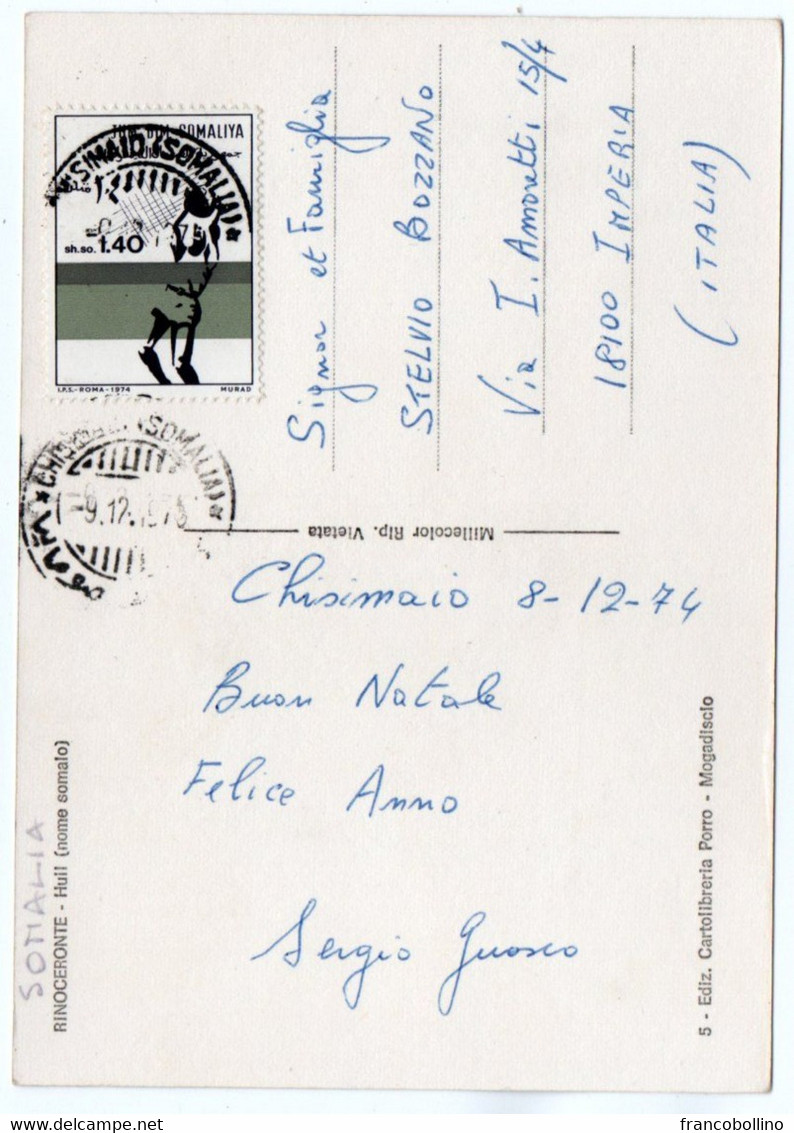 JUM. DIM. SOMALIYA
sh.so. 1.40
I.P.S.-ROMA-1974 MURAD
SIMAIO (SOMALIA)
(SOMALIA)
-9.12.197
Signor et Famiglia
STELVIO BOZZANO
Via I. Amoretti, 15/4
18100 IMPERIA
(ITALIA)
Millecolor Rip. Vietata
Chisimaio 8-12-74
Buon Natale
Felice Anno
Sergio Guasco
SOMALIA
RINOCERONTE - Huil (nome somalo)
5 - Ediz. Cartolibreria Porro - Mogadiscio
francobollino